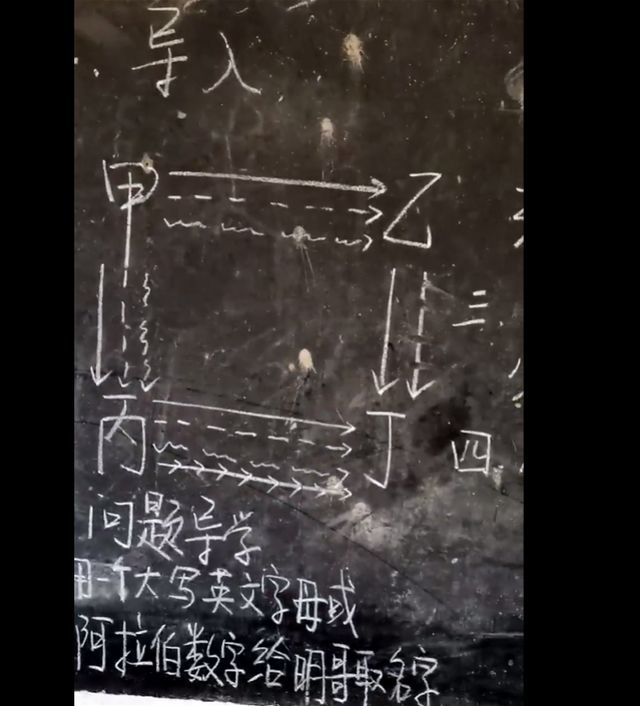 导入
甲 乙
三.
丙 丁
四.
问题导学
用一个大写英文字母或
阿拉伯数字给明哥取名字